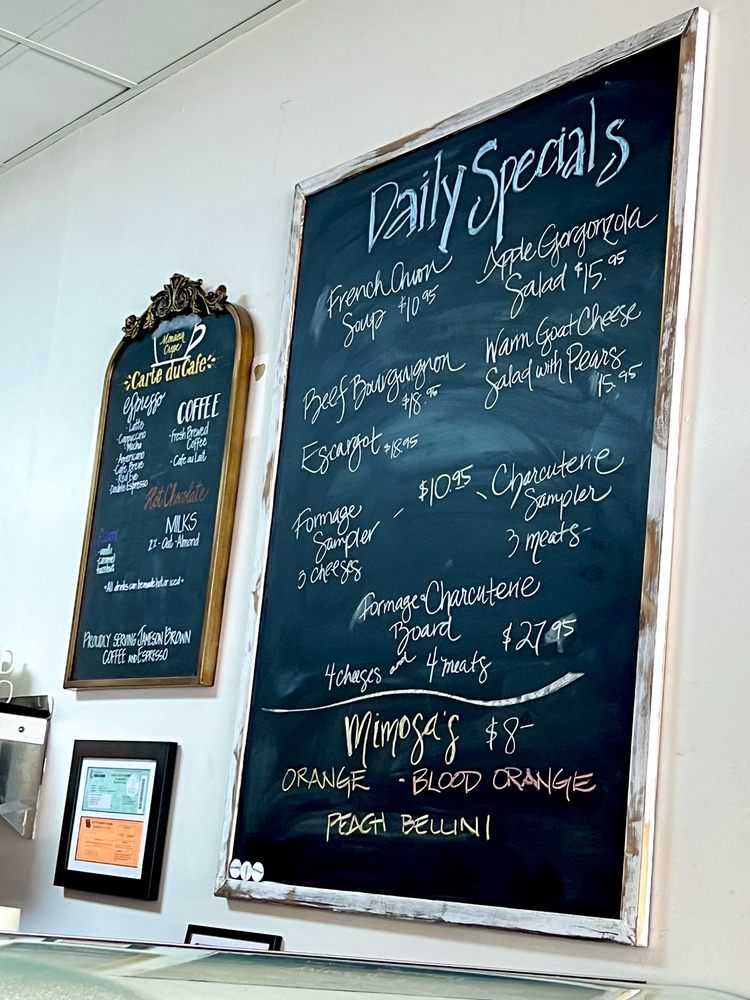 Daily Specials
French Onion
Soup $10.95
Apple Gorgonzola
Salad $15.95
Beef Bourguignon
$18.95
Warm Goat Cheese
Salad with Pears
15.95
Escargot $18.95
Formage
Sampler
3 cheeses
- $10.95 -
Charcuterie
Sampler
3 meats-
Formage & Charcuterie
Board
$27.95
4 cheeses and 4 meats
Mimosa's $8-
ORANGE - BLOOD ORANGE
PEACH BELLINI
Monsieur
Crepe
Carte du Café
espresso
-Latte
-Cappuccino
-Mocha
-Americano
-Cafe Breve
-Red Eye
-Double Espresso
COFFEE
-Fresh Brewed
Coffee
-Cafe au Lait
Hot Chocolate
MILKS
2% - Oat - Almond
-vanilla
-caramel
-hazelnut
*All drinks can be made hot or iced*
PROUDLY SERVING JAMESON BROWN
COFFEE AND ESPRESSO